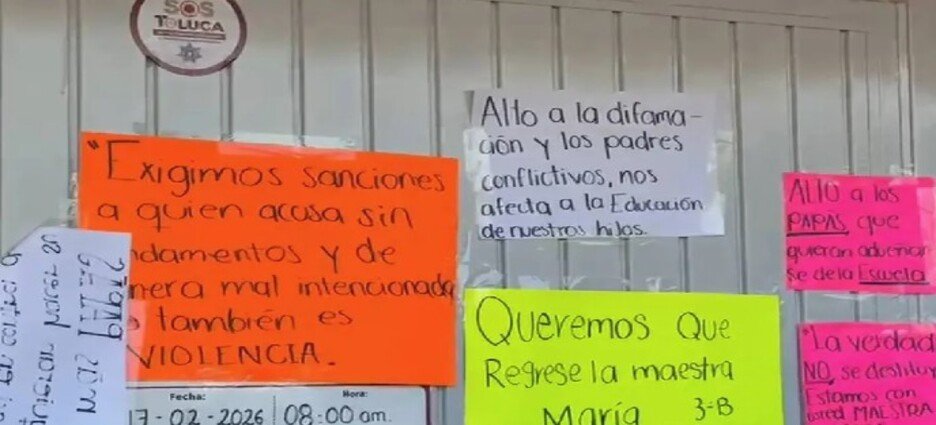 SOS
TOLUCA
"Exigimos sanciones
a quien acusa sin
ndamentos y de
nera mal intencionada
también es
VIOLENCIA.
Alto a la difama-
ción y los padres
conflictivos, nos
afecta a la Educación
de nuestros hijos.
ALTO a los
PAPAS que
quieran adueñar
se de la Escuela
Queremos que
Regrese la maestra
María 3-B
"La verdad
NO, se destituy
Estamos con
usted MAESTRA
Fecha: Hora:
17-02-2026 08:00 am.